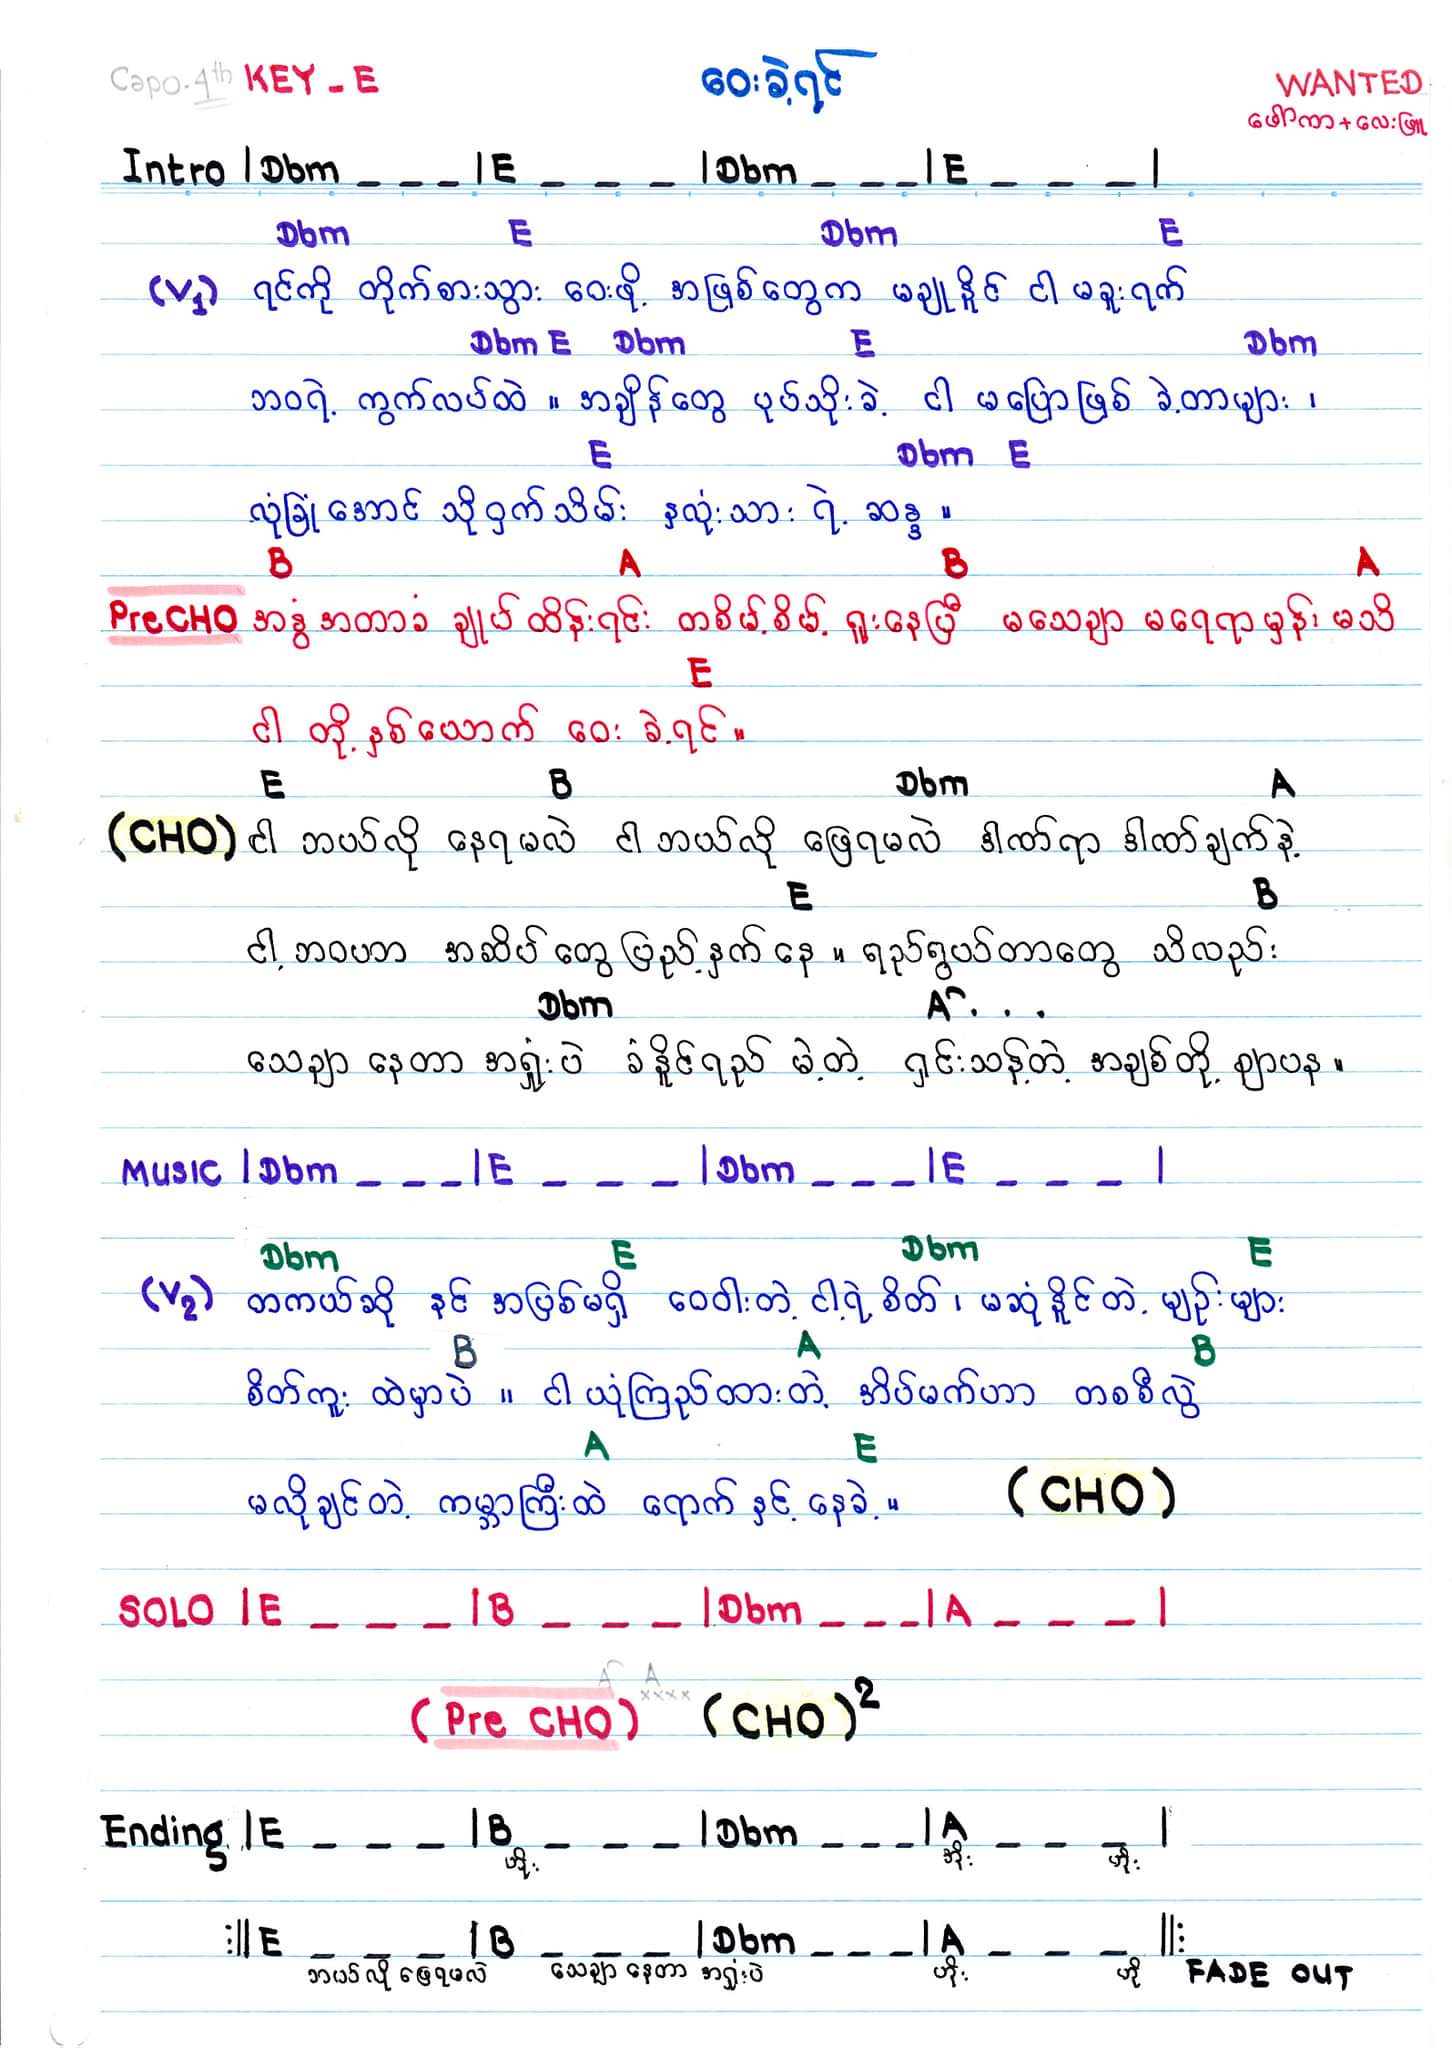 Capo.4th KEY - E ဝေးခဲ့ရင် WANTED
ဖေါ်ကာ + လေးဖြူ
Intro | Dbm _ _ _ | E _ _ _ | Dbm _ _ _ | E _ _ _ |
Dbm E Dbm E
(V1) ရင်ကို တိုက်စားသွား ဝေးဖို့ အဖြစ်တွေက မချုနိုင် ငါ မခူးရက်
Dbm E Dbm E Dbm
ဘဝရဲ့ ကွက်လပ်ထဲ ။ အချိန်တွေ ပုပ်သိုးခဲ့ ငါ မပြောဖြစ် ခဲ့တာများ ၊
E Dbm E
လုံခြုံအောင် သိုဝှက်သိမ်း နှလုံးသား ရဲ့ ဆန္ဒ ။
B A B A
PreCHO အနွံအတာခံ ချုပ်ထိန်းရင်း တစိမ့်စိမ့် ရူးနေပြီ မသေချာ မရေရာမှန်း မသိ
E
ငါ တို့ နှစ်ယောက် ဝေး ခဲ့ရင် ။
E B Dbm A
(CHO) ငါ ဘယ်လို နေရမလဲ ငါ ဘယ်လို ဖြေရမလဲ ဒါဏ်ရာ ဒါဏ်ချက်နဲ့
E B
ငါ့ ဘဝပဘ အဆိပ်တွေ ပြည့်နှက်နေ ။ ရည်ရွယ်တာတွေ သိလည်း
Dbm A . . .
သေချာ နေတာ အရှုံးပဲ ခံနိုင်ရည် မဲ့တဲ့ ရှင်းသန့်တဲ့ အချစ်တို့ ဈာပန ။
MUSIC | Dbm _ _ _ | E _ _ _ | Dbm _ _ _ | E _ _ _ |
Dbm E Dbm E
(V2) တကယ်ဆို နင် အပြစ်မရှိ ဝေဝါးတဲ့ ငါ့ရဲ့ စိတ် ၊ မဆုံနိုင်တဲ့ မျဉ်းများ
B A B
စိတ်ကူး ထဲမှာပဲ ။ ငါ ယုံကြည်ထားတဲ့ အိပ်မက်ဟာ တစစီလွဲ
A E
မလိုချင်တဲ့ ကမ္ဘာကြီးထဲ ရောက်နှင့် နေခဲ့ ။ (CHO)
SOLO | E _ _ _ | B _ _ _ | Dbm _ _ _ | A _ _ _ |
A A
xxxx
(Pre CHO) (CHO)2
Ending | E _ _ _ | B _ _ _ | Dbm _ _ _ | A _ _ _ |
ဟိုး အိုး ဟိုး
:|| E _ _ _ | B _ _ _ | Dbm _ _ _ | A _ _ _ ||: FADE OUT
ဘယ်လို ဖြေရမလဲ သေချာ နေတာ အရှုံးပဲ ဟိုး ဟို